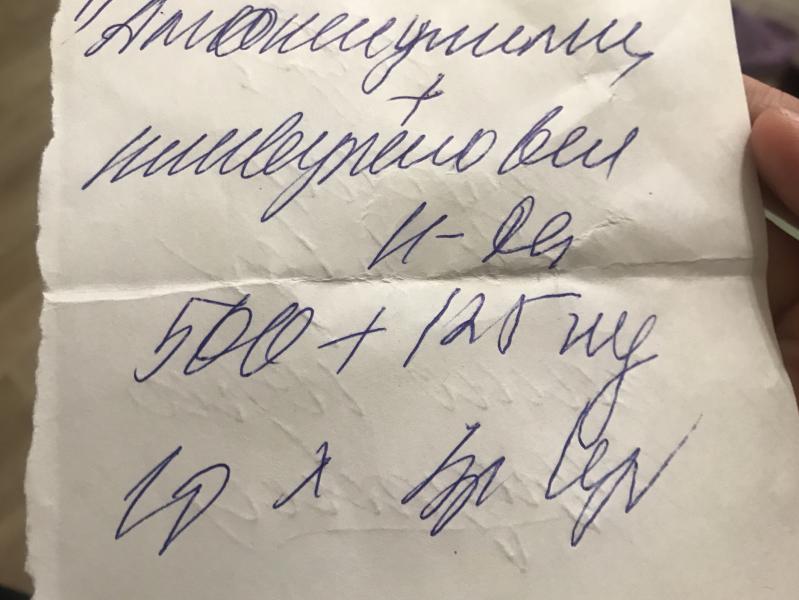 "Амоксициллин
+
клавулановая
к-та
500 + 125 мг
1т х